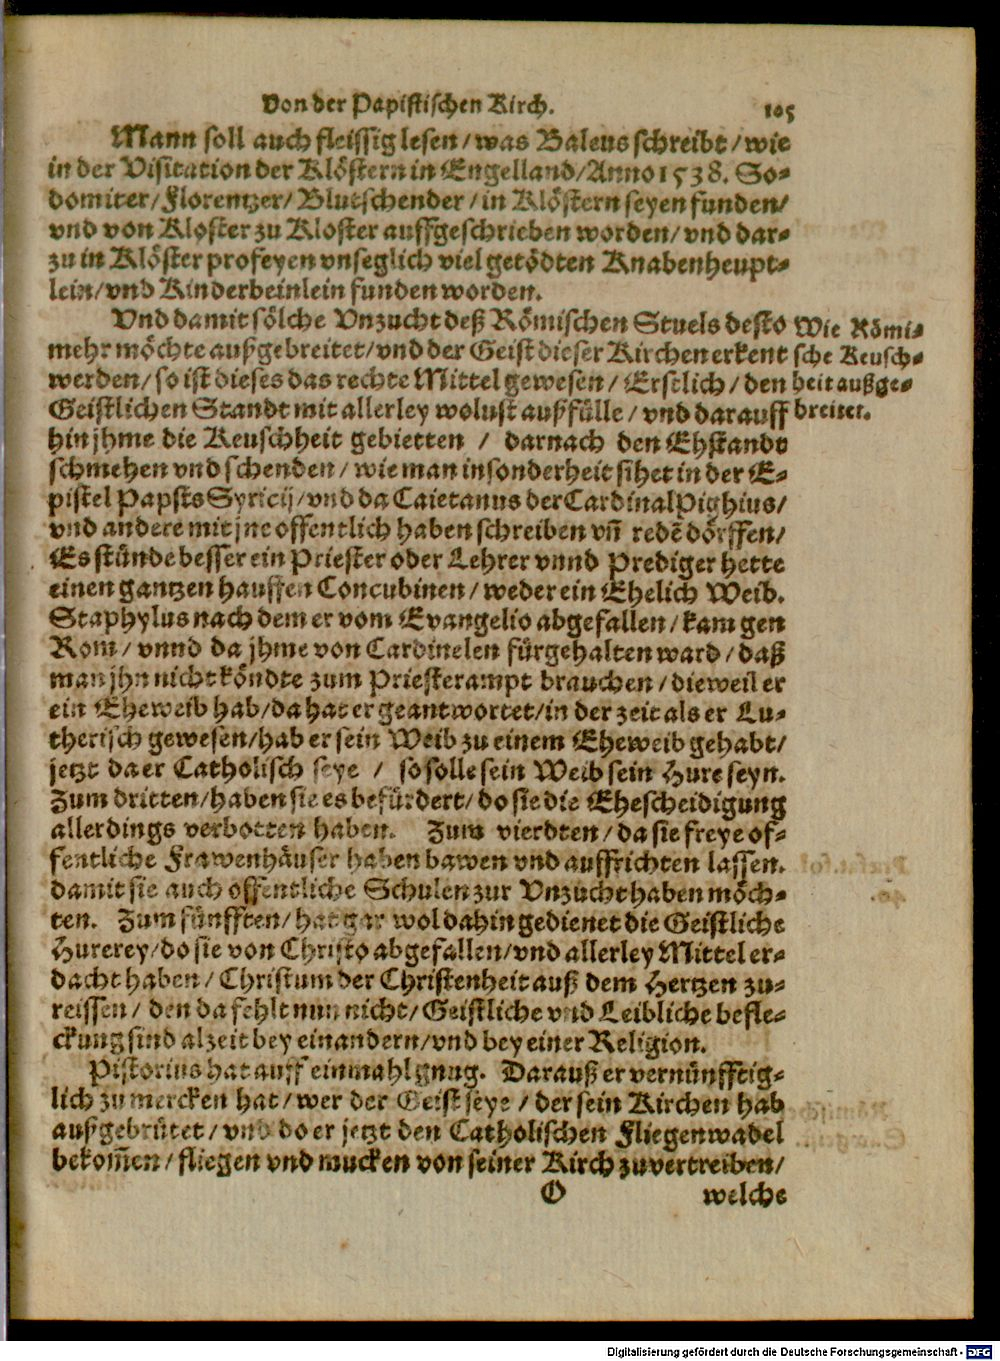 Von der Papistischen Kirch. 105
Mann soll auch fleissig lesen/ was Baleus schreibt/ wie
in der Visitation der Klöstern in Engelland/ Anno 1538. So-
domiter/ Florentzer/ Blutschender/ in Klöstern seyen funden/
vnd von Kloster zu Kloster auffgeschrieben worden/ vnd dar-
zu in Klöster profeyen vnseglich viel getödten Knabenheupt-
lein/ vnd Kinderbeinlein funden worden.
Vnd damit sölche Vnzucht deß Römischen Stuels desto
mehr möchte außgebreitet/ vnd der Geist dieser Kirchen erkent
werden/ so ist dieses das rechte Mittel gewesen/ Erstlich/ den
Geistlichen Standt mit allerley wolust außfülle/ vnd darauff
hin jhme die Keuschheit gebietten / darnach den Ehstandt
schmehen vnd schenden/ wie man insonderheit sihet in der E-
pistel Papsts Syricij/ vnd da Caietanus der Cardinal Pighius/
vnd andere mit jne offentlich haben schreiben vñ redẽ dörffen/
Es stünde besser ein Priester oder Lehrer vnnd Prediger hette
einen gantzen hauffen Concubinen/ weder ein Ehelich Weib.
Staphylus nach dem er vom Evangelio abgefallen/ kam gen
Rom/ vnnd da jhme von Cardinelen fürgehalten ward/ daß
man jhn nicht köndte zum Priesterampt brauchen/ dieweil er
ein Eheweib hab/ da hat er geantwortet/ in der zeit als er Lu-
therisch gewesen/ hab er sein Weib zu einem Eheweib gehabt/
jetzt da er Catholisch seye / so solle sein Weib sein Hure seyn.
Zum dritten/ haben sie es befürdert/ do sie die Ehescheidigung
allerdings verbotten haben. Zum vierdten/ da sie freye of-
fentliche Frawenhäuser haben bawen vnd auffrichten lassen.
damit sie auch offentliche Schulen zur Vnzucht haben möch-
ten. Zum fünfften/ hat gar wol dahin gedienet die Geistliche
Hurerey/ do sie von Christo abgefallen/ vnd allerley Mittel er-
dacht haben/ Christum der Christenheit auß dem Hertzen zu-
reissen/ den da fehlt nun nicht/ Geistliche vnd Leibliche befle-
ckung sind alzeit bey einandern/ vnd bey einer Religion.
Pistorius hat auff einmahl gnug. Darauß er vernünfftig-
lich zu mercken hat/ wer der Geist seye/ der sein Kirchen hab
außgebrütet/ vnd do er jetzt den Catholischen Fliegenwadel
bekom̃en/ fliegen vnd mucken von seiner Kirch zuvertreiben/
O welche
Wie Römi-
sche Keusch-
heit außge-
breitet.
Digitalisierung gefördert durch die Deutsche Forschungsgemeinschaft - DFG